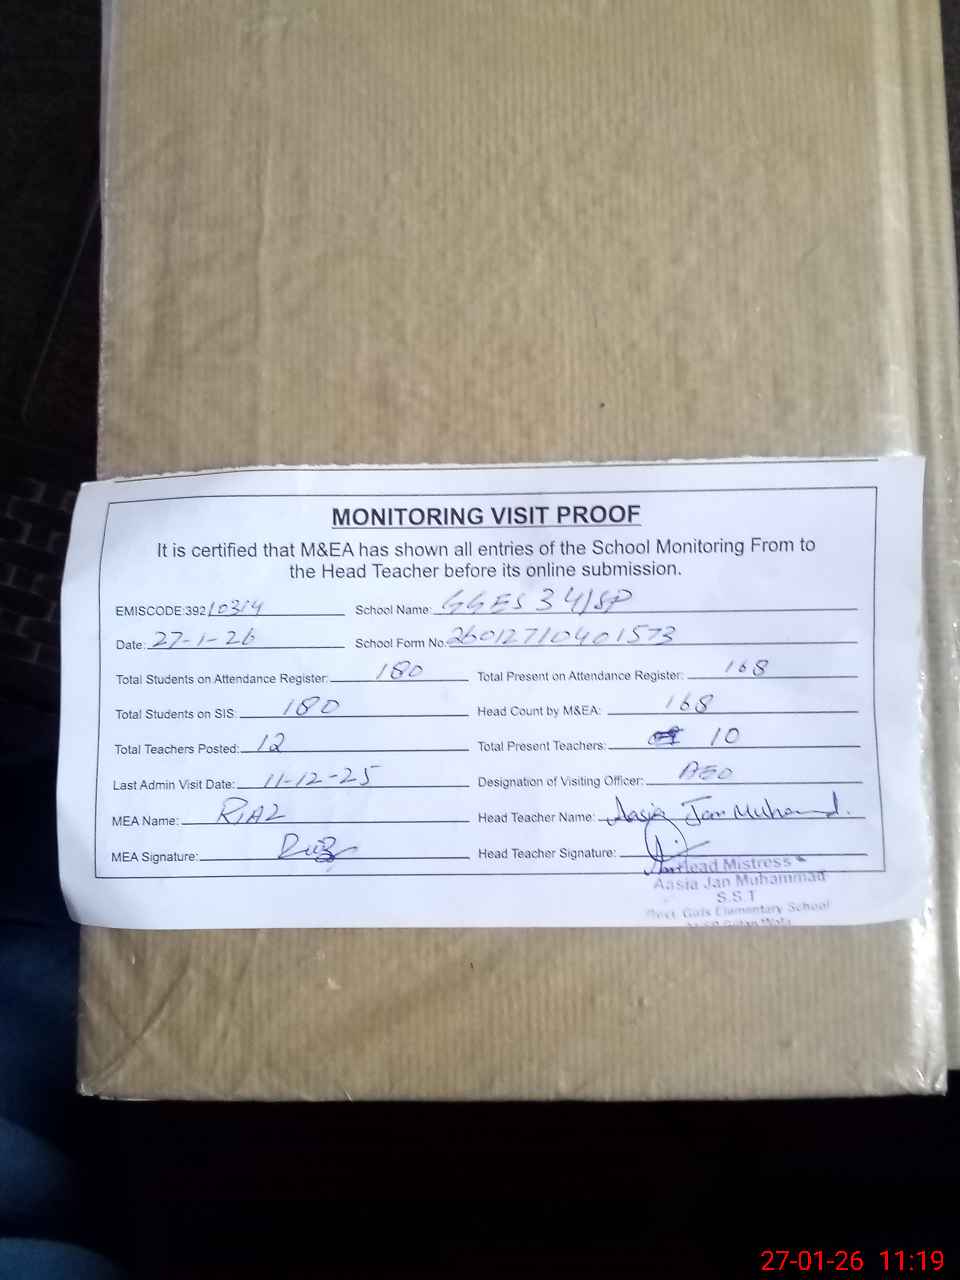 MONITORING VISIT PROOF
It is certified that M&EA has shown all entries of the School Monitoring From to
the Head Teacher before its online submission.
EMISCODE:39210314 School Name: GGES 34/SP
Date: 27-1-26 School Form No. 26012710401573
Total Students on Attendance Register: 180 Total Present on Attendance Register: 168
Total Students on SIS: 180 Head Count by M&EA: 168
Total Teachers Posted: 12 Total Present Teachers: 10
Last Admin Visit Date: 11-12-25 Designation of Visiting Officer: AEO
MEA Name: RIAZ Head Teacher Name: Aasia Jan Muhammad.
MEA Signature: Head Teacher Signature:
Head Mistress
Aasia Jan Muhammad
S.S.T
Govt. Girls Elementary School
27-01-26 11:19